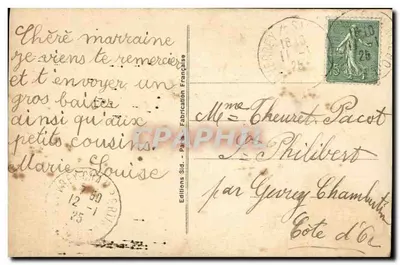 Chère marraine
je viens te remercier
et t'envoyer un
gros baiser
ainsi qu'aux
petits cousins.
Marie-Louise
Editions Sid. - Fabrication Française
Mme Theuret-Pacot
St Philibert
par Gevrey Chambertin
Côte d'Or
18 30
11 -1
25
12 -1
25
CPARTPHIL